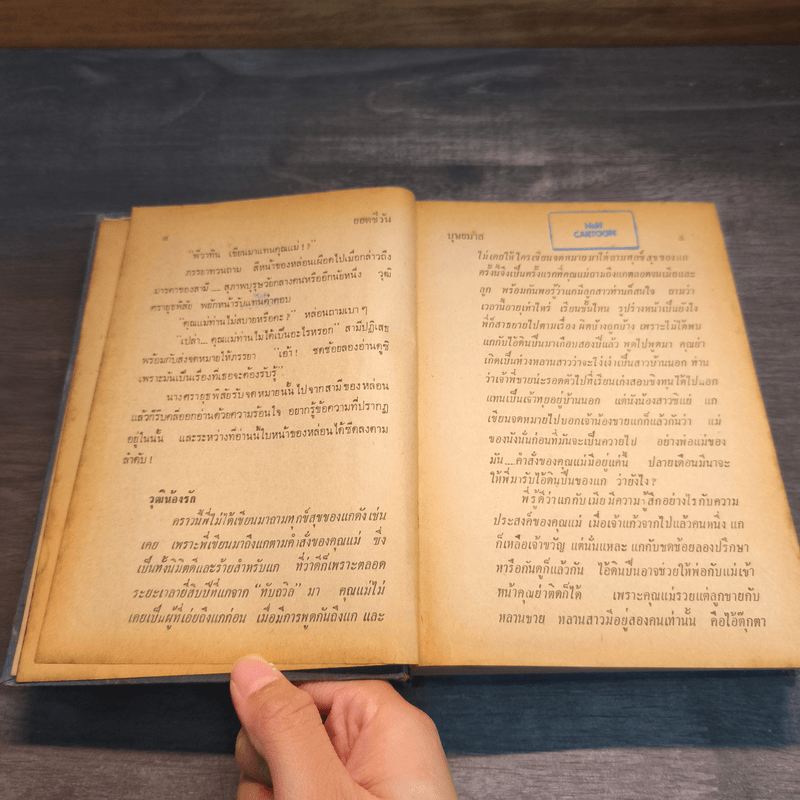 ๔ ยอดชีวัน
“พี่วาทิน เขียนมาแทนคุณแม่!?”
ภรรยาทวนถาม สีหน้าของหล่อนเผือดไปเมื่อกล่าวถึง
มารดาของสามี.... สุภาพบุรุษวัยกลางคนหรืออีกนัยหนึ่ง วุฒิ
ศรายุธพิสัย พยักหน้ารับแทนคำตอบ
“คุณแม่ท่านไม่สบายหรือคะ?” หล่อนถามเบาๆ
“เปล่า... คุณแม่ท่านไม่ได้เป็นอะไรหรอก” สามีปฏิเสธ
พร้อมกับส่งจดหมายให้ภรรยา “เอ้า! ชดช้อยลองอ่านดูซิ
เพราะมันเป็นเรื่องที่เธอจะต้องรับรู้”
นางศรายุธพิสัยรับจดหมายนั้นไปจากสามีของหล่อน
แล้วก็รีบคลี่ออกอ่านด้วยความร้อนใจ อยากรู้ข้อความที่ปรากฏ
อยู่ในนั้น และระหว่างที่อ่านนี้ใบหน้าของหล่อนได้ซีดลงตาม
ลำดับ!
วุฒิน้องรัก
คราวนี้พี่ไม่ได้เขียนมาถามทุกข์สุขของแกดังเช่น
เคย เพราะพี่เขียนมาถึงแกตามคำสั่งของคุณแม่ ซึ่ง
เป็นทั้งนิมิตดีและร้ายสำหรับแก ที่ว่าดีก็เพราะตลอด
ระยะเวลายี่สิบปีที่แกจาก “ทับถวิล” มา คุณแม่ไม่
เคยเป็นผู้ที่เอ่ยถึงแกก่อน เมื่อมีการพูดกันถึงแก และ
บุษยมาส ๕
NaN
CARTOON
ไม่เคยให้ใครเขียนจดหมายมาไต่ถามทุกข์สุขของแก
ครั้งนี้จึงเป็นครั้งแรกที่คุณแม่ถามถึงแกตลอดจนเมียและ
ลูก พร้อมกันพอรู้ว่าแกมีลูกสาวท่านก็สนใจ ถามว่า
เวลานี้อายุเท่าไหร่ เรียนชั้นไหน รูปร่างหน้าเป็นยังไง
พี่ก็สาธยายไปตามเรื่อง ผิดบ้างถูกบ้าง เพราะไม่ได้พบ
แกกับไอ้ดินปั้นมาเกือบสองปีแล้ว พูดไปพูดมา คุณย่า
เกิดเป็นห่วงหลานสาวว่าจะโง่เง่าเป็นสาวบ้านนอก ท่าน
ว่าเจ้าพี่ชายน่ะรอดตัวไปที่เรียนเก่งสอบชิงทุนได้ไปนอก
แทนเป็นเจ้าทุยอยู่บ้านนอก แต่นังน้องสาวซิแย่ แก
เขียนจดหมายไปบอกเจ้าน้องชายแกก็แล้วกันว่า แม่
ของนังนั่นก่อนที่มันจะเป็นควายไป อย่างพ่อแม่ของ
มัน....คำสั่งของคุณแม่มีอยู่แค่นี้ ปลายเดือนมีนาจะ
ให้พี่มารับไอ้ดินปั้นของแก ว่ายังไง?
พี่รู้ดีว่าแกกับเมียมีความรู้สึกอย่างไรกับความ
ประสงค์ของคุณแม่ เมื่อเจ้าแก้วจากไปแล้วคนหนึ่ง แก
ก็เหลือเจ้าขวัญ แต่นั่นแหละ แกกับชดช้อยลองปรึกษา
หารือกันดูก็แล้วกัน ไอ้ดินปั้นอาจช่วยให้พ่อกับแม่เข้า
หน้าคุณย่าติดก็ได้ เพราะคุณแม่รวยแต่ลูกชายกับ
หลานชาย หลานสาวมีอยู่สองคนเท่านั้น คือไอ้ตุ๊กตา